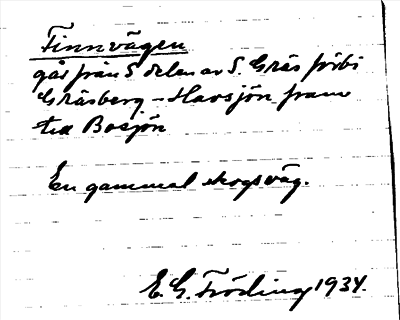 Finnvägen
går från S delen av S. Gräs förbi
Gräsberg - Havsjön fram
till Bosjön
En gammal skogsväg.
E. G. Fröding 1934.